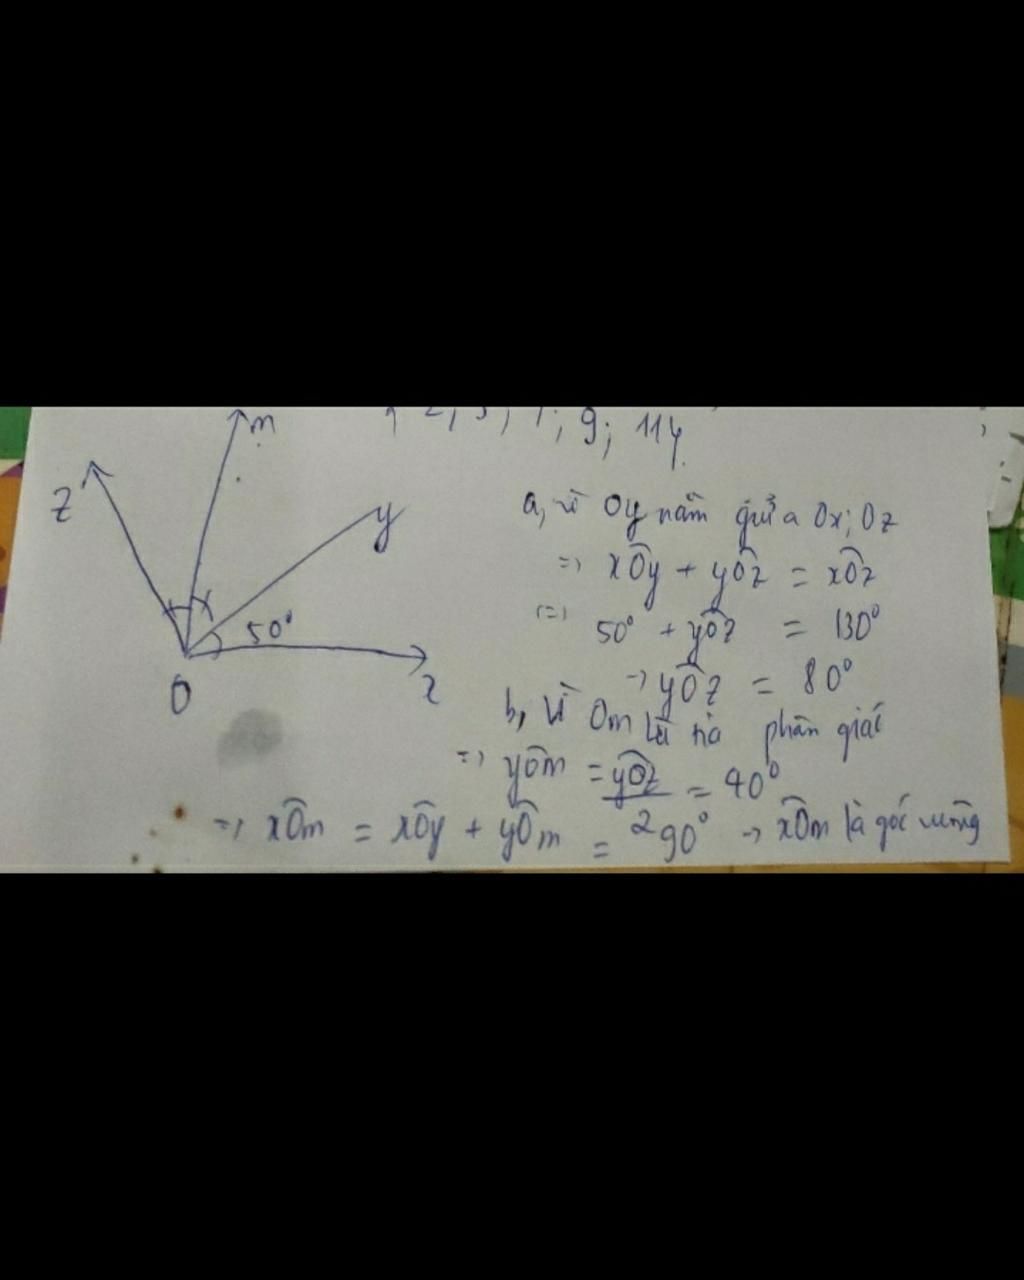 m
z
y
50°
x
O
9; 114
a, vì Oy nằm giữa Ox; Oz
=> xÔy + yÔz = xÔz
(=) 50° + yÔz = 130°
-> yÔz = 80°
b, Vì Om là tia phân giác
=> yÔm = yÔz/2 = 40°
=> xÔm = xÔy + yÔm = 90° -> xÔm là góc vuông